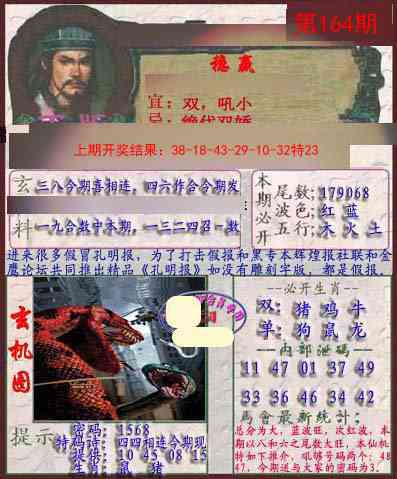 第164期
稳赢
宜：双，吼小
忌：绝代双娇
上期开奖结果：38-18-43-29-10-32特23
玄 三八今期喜相连，四六拃合今期发
料 一九合数中本期，一三二四召一数
本期必开
尾数:179068
波色:红 蓝
五行:木 火 土
进来很多假冒孔明报，为了打击假报和黑专本辉煌报社联和金
鹰论坛共同推出精品《孔明报》如没有雕刻字版，都是假报。
玄机图
--必开生肖--
双: 猪 鸡 牛
单: 狗 鼠 龙
--内部泄码--
11 47 01 37 49
33 36 46 34 42
马會最新統计:
总分为大，蓝波旺，次红波，本
期以八和六之尾数大旺，本仙机
特如下推介，吼够号码两个: 48
47，今期送与大家的密码为3.
提示
密码: 1568
特码诗: 四四相连今期现
提供: 10 45 08 15
生肖: 鼠 猪